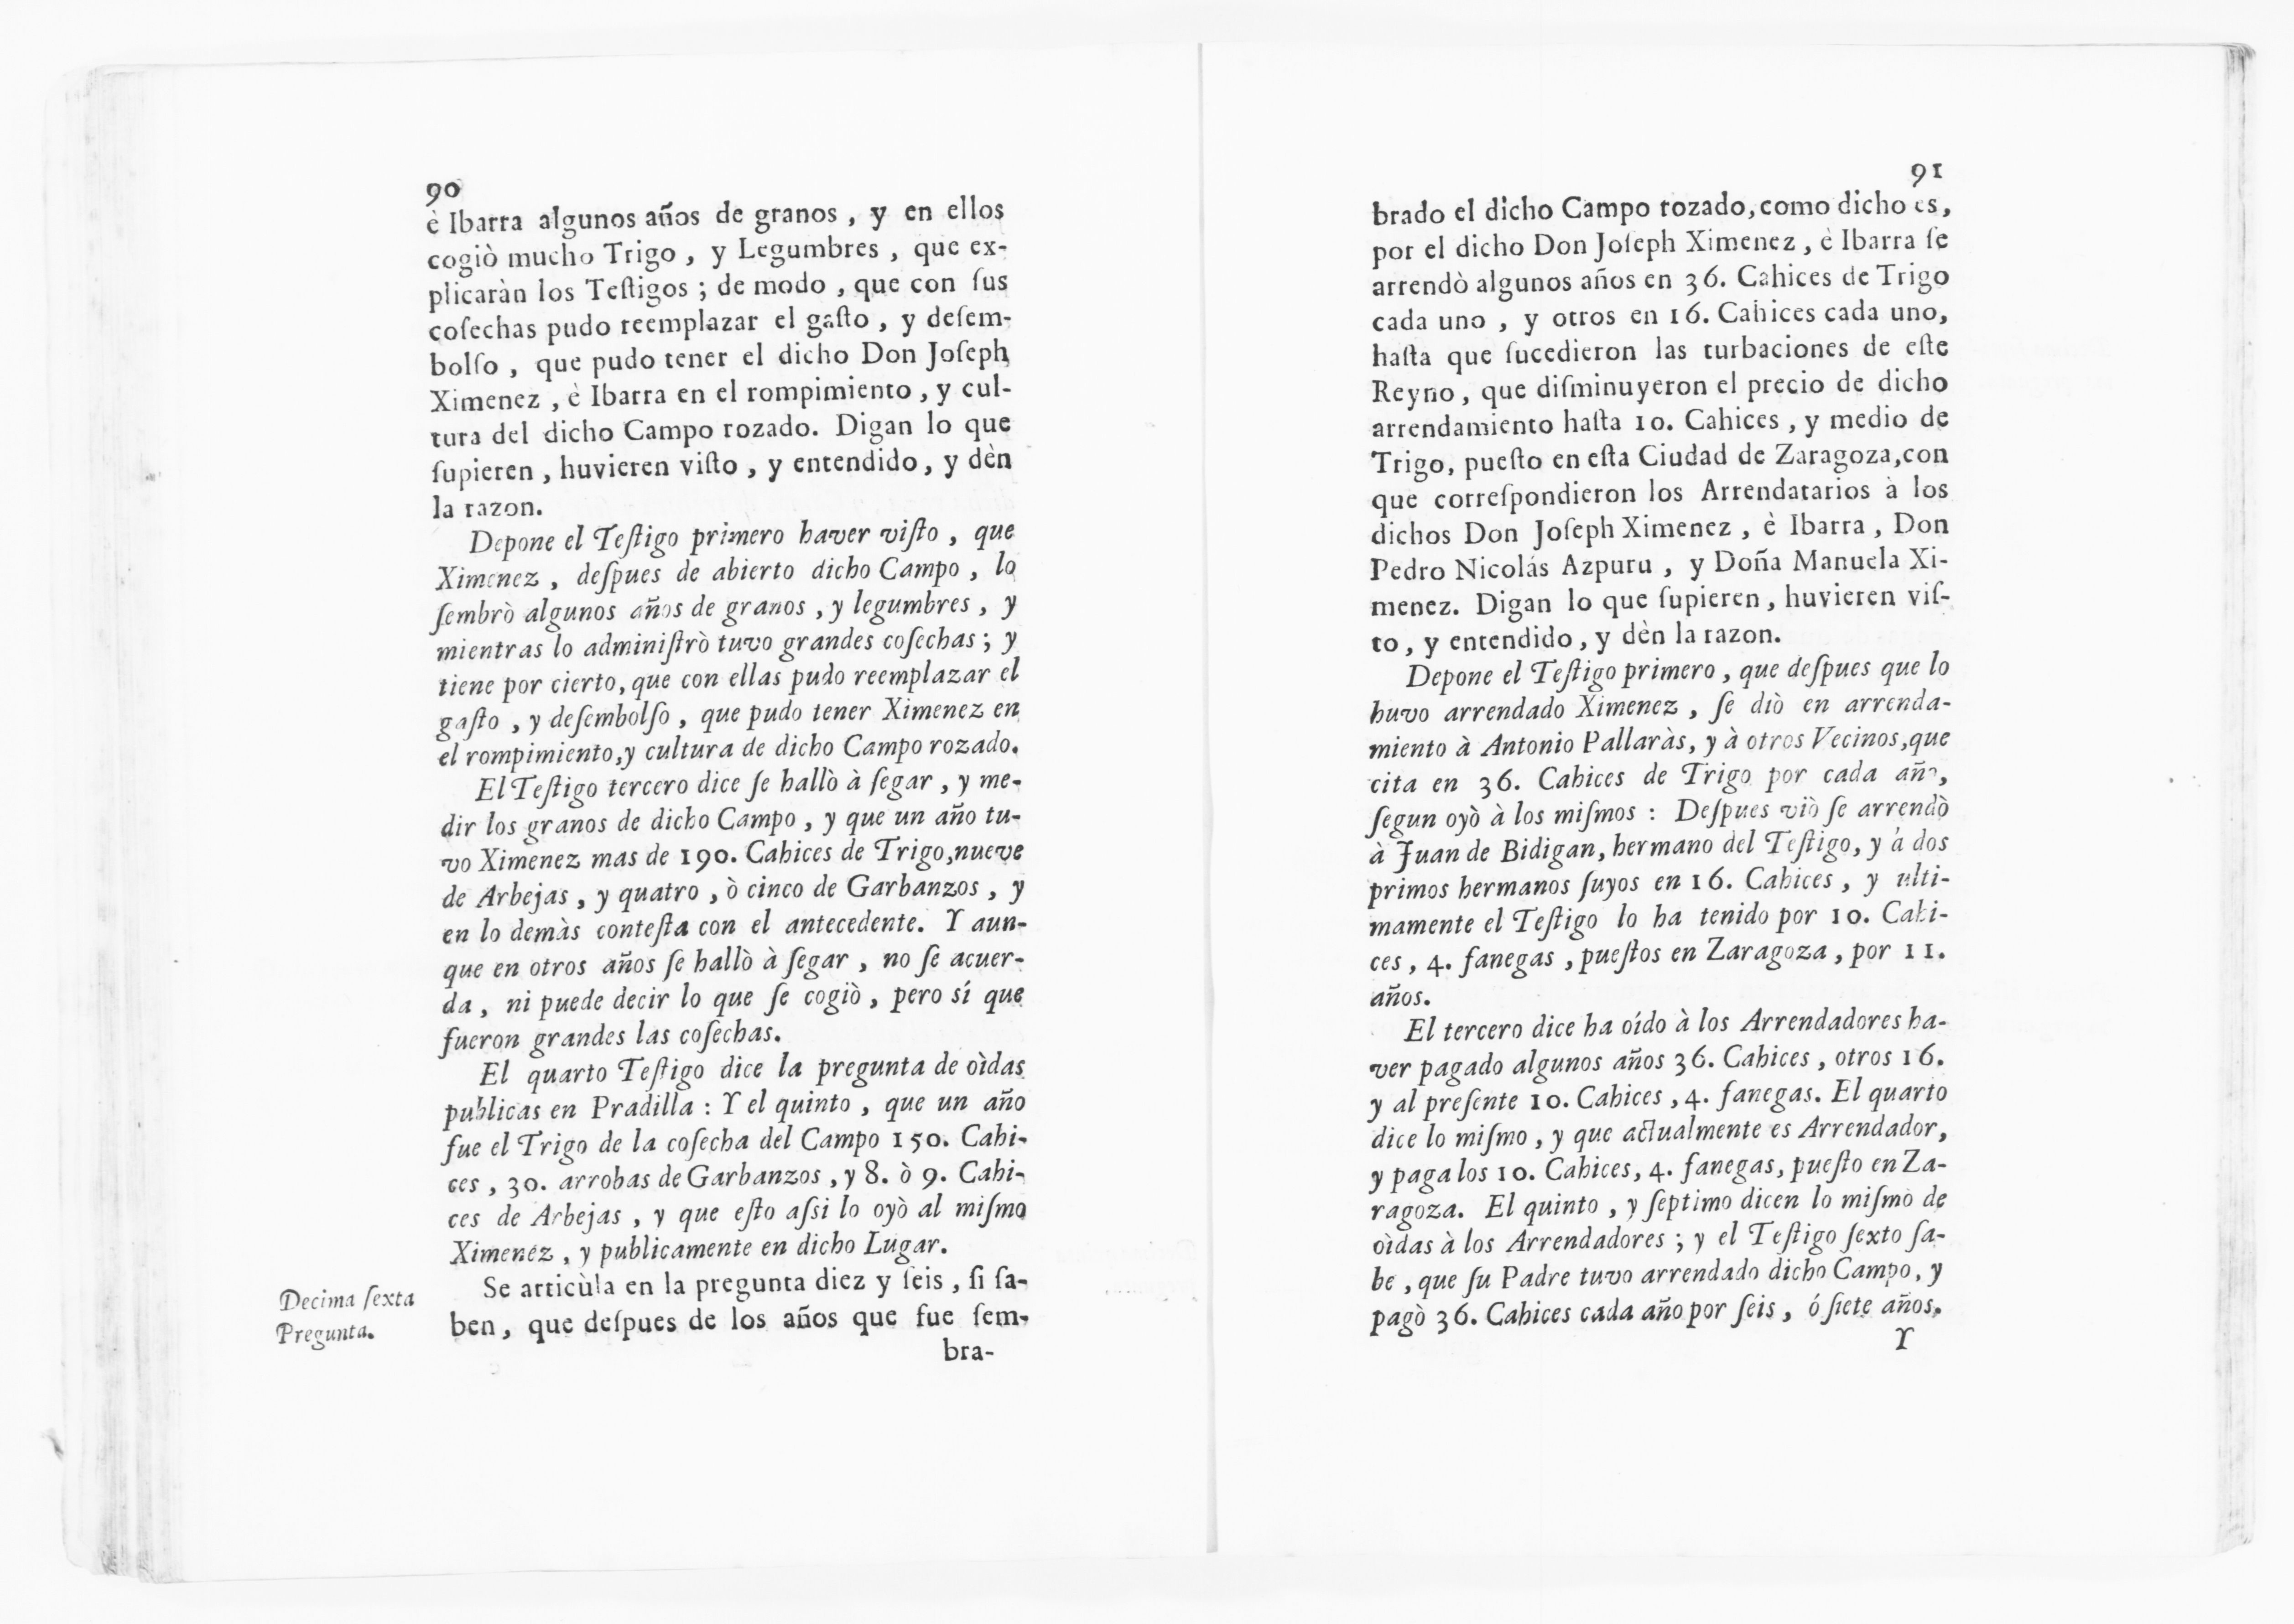 90
è Ibarra algunos años de granos, y en ellos
cogiò mucho Trigo, y Legumbres, que ex-
plicaràn los Teſtigos; de modo, que con ſus
coſechas pudo reemplazar el gaſto, y deſem-
bolſo, que pudo tener el dicho Don Joſeph
Ximenez, è Ibarra en el rompimiento, y cul-
tura del dicho Campo rozado. Digan lo que
ſupieren, huvieren viſto, y entendido, y dèn
la razon.
Depone el Teſtigo primero haver viſto, que
Ximenez, deſpues de abierto dicho Campo, lo
ſembrò algunos años de granos, y legumbres, y
mientras lo adminiſtrò tuvo grandes coſechas; y
tiene por cierto, que con ellas pudo reemplazar el
gaſto, y deſembolſo, que pudo tener Ximenez en
el rompimiento, y cultura de dicho Campo rozado.
El Teſtigo tercero dice ſe hallò à ſegar, y me-
dir los granos de dicho Campo, y que un año tu-
vo Ximenez mas de 190. Cahices de Trigo, nueve
de Arbejas, y quatro, ò cinco de Garbanzos, y
en lo demàs conteſta con el antecedente. Y aun-
que en otros años ſe hallò à ſegar, no ſe acuer-
da, ni puede decir lo que ſe cogiò, pero sí que
fueron grandes las coſechas.
El quarto Teſtigo dice la pregunta de oìdas
publicas en Pradilla: Y el quinto, que un año
fue el Trigo de la coſecha del Campo 150. Cahi-
ces, 30. arrobas de Garbanzos, y 8. ò 9. Cahi-
ces de Arbejas, y que eſto aſsi lo oyò al miſmo
Ximenez, y publicamente en dicho Lugar.
Decima ſexta
Pregunta.
Se articùla en la pregunta diez y ſeis, ſi ſa-
ben, que deſpues de los años que fue ſem-
bra-
91
brado el dicho Campo rozado, como dicho es,
por el dicho Don Joſeph Ximenez, è Ibarra ſe
arrendò algunos años en 36. Cahices de Trigo
cada uno, y otros en 16. Cahices cada uno,
haſta que ſucedieron las turbaciones de eſte
Reyno, que diſminuyeron el precio de dicho
arrendamiento haſta 10. Cahices, y medio de
Trigo, pueſto en eſta Ciudad de Zaragoza, con
que correſpondieron los Arrendatarios à los
dichos Don Joſeph Ximenez, è Ibarra, Don
Pedro Nicolás Azpuru, y Doña Manuela Xi-
menez. Digan lo que ſupieren, huvieren viſ-
to, y entendido, y dèn la razon.
Depone el Teſtigo primero, que deſpues que lo
huvo arrendado Ximenez, ſe diò en arrenda-
miento à Antonio Pallaràs, y à otros Vecinos, que
cita en 36. Cahices de Trigo por cada año,
ſegun oyò à los miſmos: Deſpues viò ſe arrendò
à Juan de Bidigan, hermano del Teſtigo, y à dos
primos hermanos ſuyos en 16. Cahices, y ulti-
mamente el Teſtigo lo ha tenido por 10. Cahi-
ces, 4. fanegas, pueſtos en Zaragoza, por 11.
años.
El tercero dice ha oído à los Arrendadores ha-
ver pagado algunos años 36. Cahices, otros 16.
y al preſente 10. Cahices, 4. fanegas. El quarto
dice lo miſmo, y que actualmente es Arrendador,
y paga los 10. Cahices, 4. fanegas, pueſto en Za-
ragoza. El quinto, y ſeptimo dicen lo miſmo de
oìdas à los Arrendadores; y el Teſtigo ſexto ſa-
be, que ſu Padre tuvo arrendado dicho Campo, y
pagò 36. Cahices cada año por ſeis, ó ſiete años.
Y